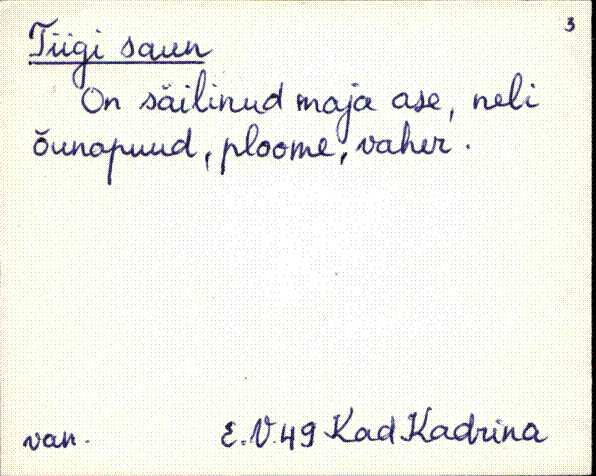 3
Tiigi saun
On säilinud maja ase, neli
õunapuud, ploome, vaher.
van. E.V.49 Kad Kadrina